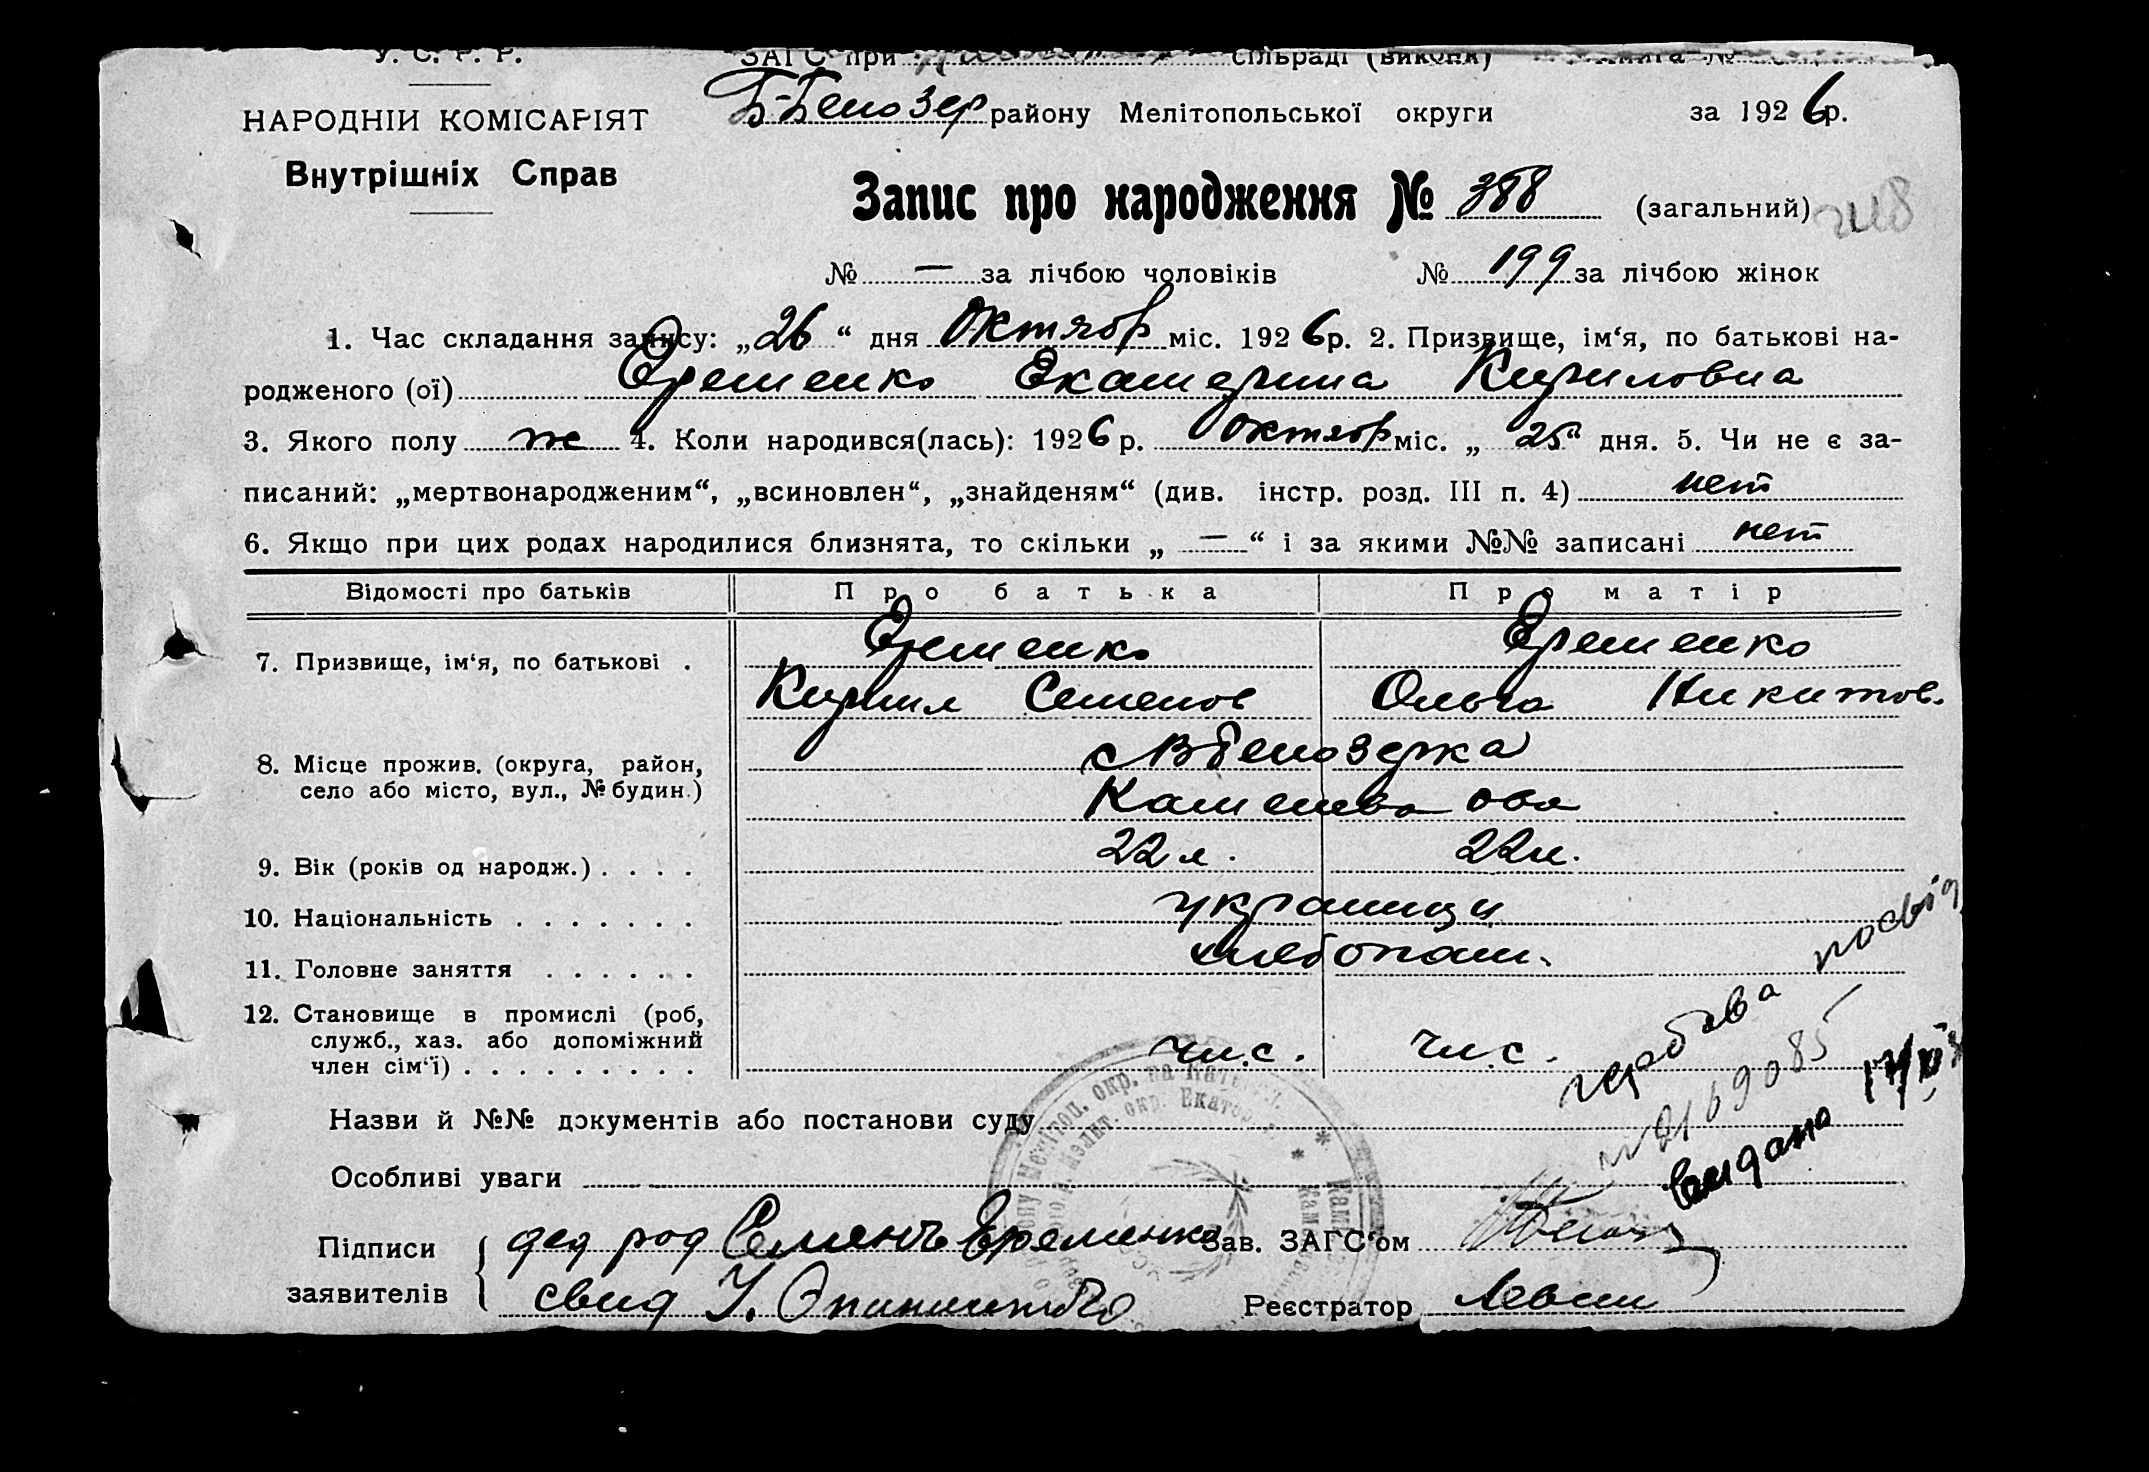 У. С. Р. Р.
ЗАГС при сільраді (виконк) книга №
НАРОДНІЙ КОМІСАРІЯТ
Внутрішніх Справ
Б-Белозер району Мелітопольської округи за 1926р.
Запис про народження № 388 (загальний)
№ — за лічбою чоловіків № 199 за лічбою жінок
1. Час складання запису: „26“ дня Октябр міс. 1926р. 2. Призвище, ім‘я, по батькові на-
родженого (ої) Еременко Екатерина Кириловна
3. Якого полу ж 4. Коли народився(лась): 1926р. Октябр міс. „25“ дня. 5. Чи не є за-
писаний: „мертвонародженим“, „всиновлен“, „знайденям“ (див. інстр. розд. III п. 4) нет
6. Якщо при цих родах народилися близнята, то скільки „—“ і за якими №№ записані нет
Відомості про батьків Про батька Про матір
7. Призвище, ім‘я, по батькові . Еременко Еременко
Кирил Семенов Ольга Никитов.
8. Місце прожив. (округа, район,
село або місто, вул., № будин.)
с ВБелозерка
9. Вік (років од народж.) . . . . 22 л. 22 л.
10. Національність . . . . . . . украинцы
11. Головне заняття . . . . . . хлебопаш.
12. Становище в промислі (роб,
служб., хаз. або допоміжний
член сім‘ї) . . . . . . . . . чл.с. чл.с.
Назви й №№ документів або постанови суду
Особливі уваги
видана
Підписи заявителів
дед род Семенъ Еременко
Зав. ЗАГС‘ом
свид
Реєстратор Левии